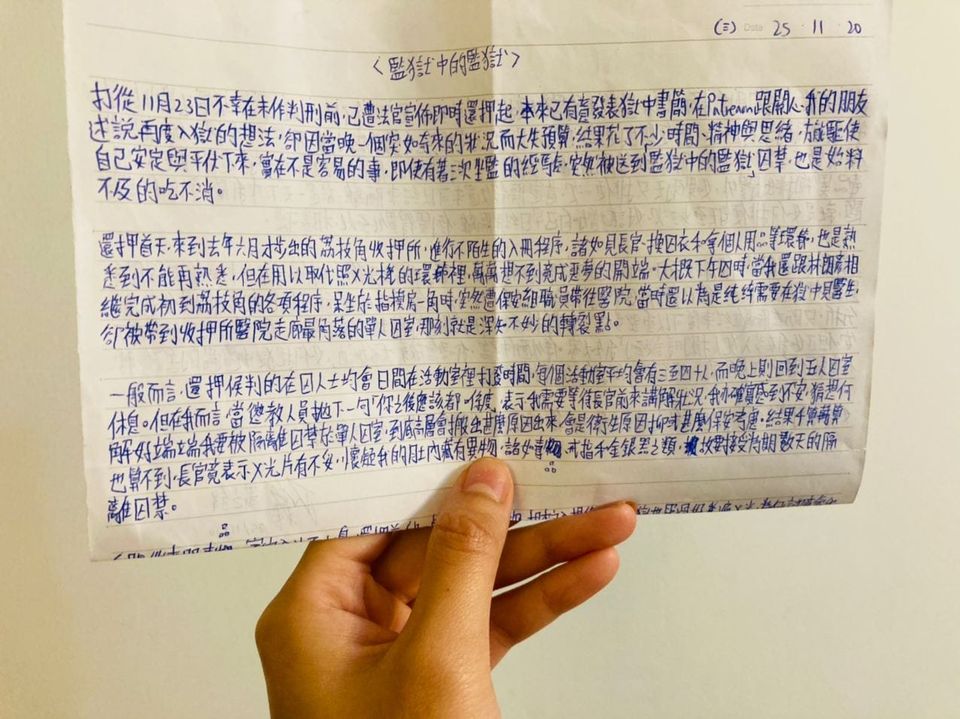 (三) Date 25 . 11 . 20
〈監獄中的監獄〉
打從11月23日不幸在未作判刑前，已遭法官宣佈即時還押起，本來已有意發表獄中書簡，在Patreon跟關心我的朋友
述說再度入獄的想法，卻因當晚一個突如奇來的狀況而大失預算，結果花了不少時間、精神與思緒，方能驅使
自己安定與平伏下來，實在不是容易的事，即使有著三次坐監的經歷，突然被送到監獄中的監獄囚禁，也是始料
不及的吃不消。
還押首天，來到去年六月才步出的荔枝角收押所，進行不陌生的入冊程序，諸如見長官、換囚衣和拿個人用品等環節，也是熟
悉到不能再熟悉，但在用以取代照X光機的環節裡，萬萬想不到竟成惡夢的開端。大概下午四時，當我還跟林朗彥相
繼完成初到荔枝角的各項程序，呆坐於指模房一角時，突然遭保安組職員帶往醫院，當時還以為是純粹需要在獄中見醫生，
卻被帶到收押所醫院走廊最角落的單人囚室，那刻就是深知不妙的轉捩點。
一般而言，還押候判的在囚人士均會日間在活動室裡打發時間，每個活動室平均會有三至四十人，而晚上則回到五人囚室
休息。但在我而言，當懲教人員拋下一句「你之後應該都一個人」後，表示我需要等待長官前來講解狀況，我亦確實感到不安，猜想何
解好端端我要被隔離囚禁於單人囚室，到底高層會搬出甚麼原因出來，會是衛生原因抑或甚麼保安考慮，結果千算萬算
也算不到，長官竟表示X光片有不妥，懷疑我的肚內藏有異物，諸如毒物、戒指和金銀器之類，故對我授為期數天的隔
離囚禁。